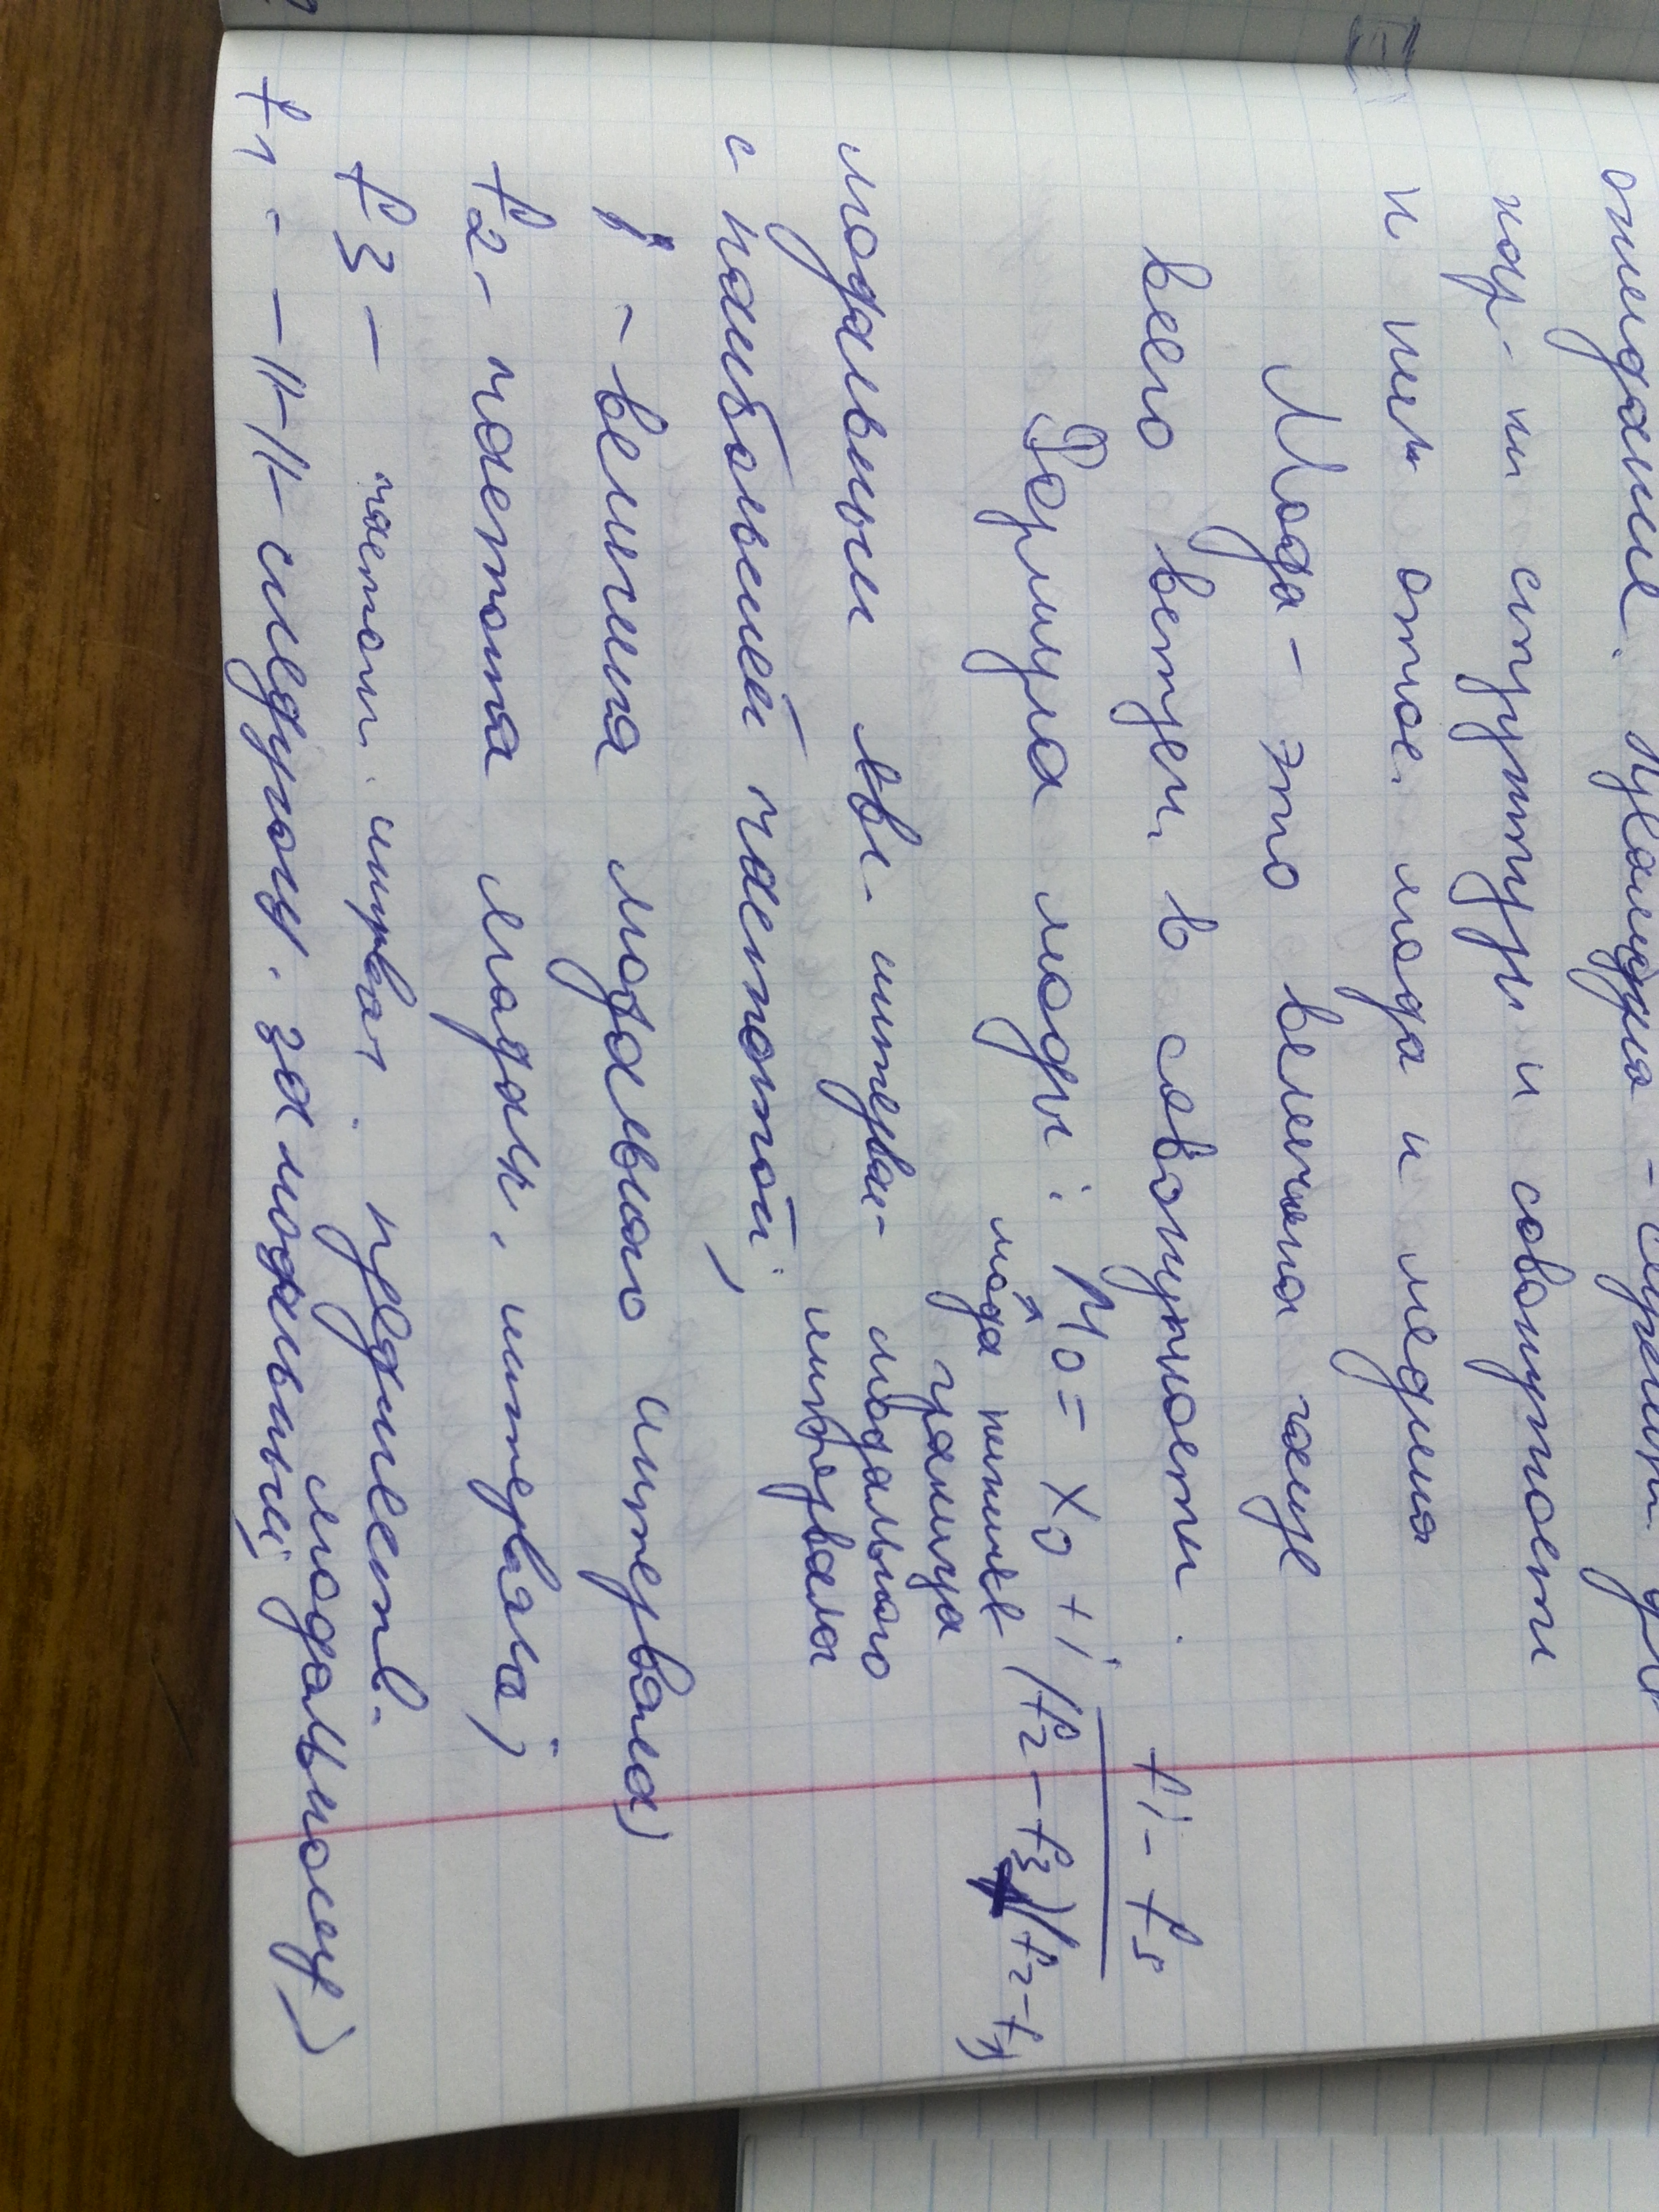 хар-ки структуры и совокупности
и ним относ. мода и медиана
Мода - это величина чаще
всего встреч. в совокупности.
Формула моды: М0 = X0 + i f1 - f3 / (f2 - f3)(f2 - f1)
мода нижняя
граница
модальным явл. интервал модального
интервала
с наибольшей частотой;
i - величина модального интервала)
f2 - частота модальн. интервала;
f3 - частот. интервал. предшеств.
модальному)
f1 - -//-//- следующ. за модальный;